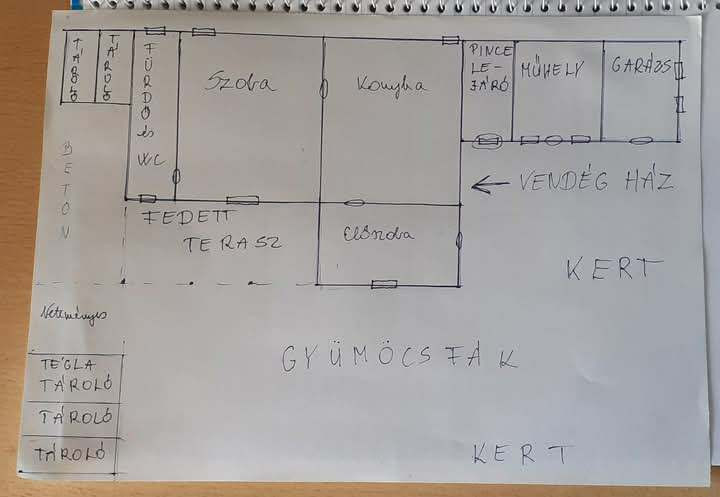 TÁROLÓ
TÁROLÓ
FÜRDŐ és WC
Szoba
Konyha
PINCE
LE-
JÁRÓ
MŰHELY
GARÁZS
BETON
VENDÉG HÁZ
FEDETT
TERASZ
Előszoba
KERT
Veteményes
GYÜMÖCSFÁK
TÉGLA
TÁROLÓ
TÁROLÓ
TÁROLÓ
KERT